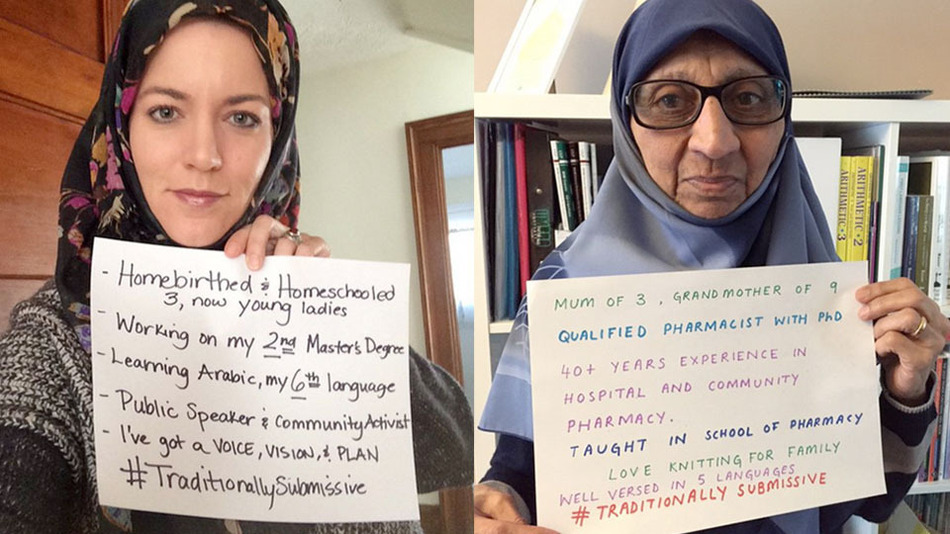 - Homebirthed & Homeschooled
3, now young ladies
- Working on my 2nd Master's Degree
- Learning Arabic, my 6th language
- Public Speaker & Community Activist
- I've got a VOICE, VISION, & PLAN
#TraditionallySubmissive
MUM OF 3, GRANDMOTHER OF 9
QUALIFIED PHARMACIST WITH PhD
40+ YEARS EXPERIENCE IN
HOSPITAL AND COMMUNITY
PHARMACY.
TAUGHT IN SCHOOL OF PHARMACY
LOVE KNITTING FOR FAMILY
WELL VERSED IN 5 LANGUAGES
# TRADITIONALLY SUBMISSIVE
ARITHMETIC·3
ARITHMETIC·2